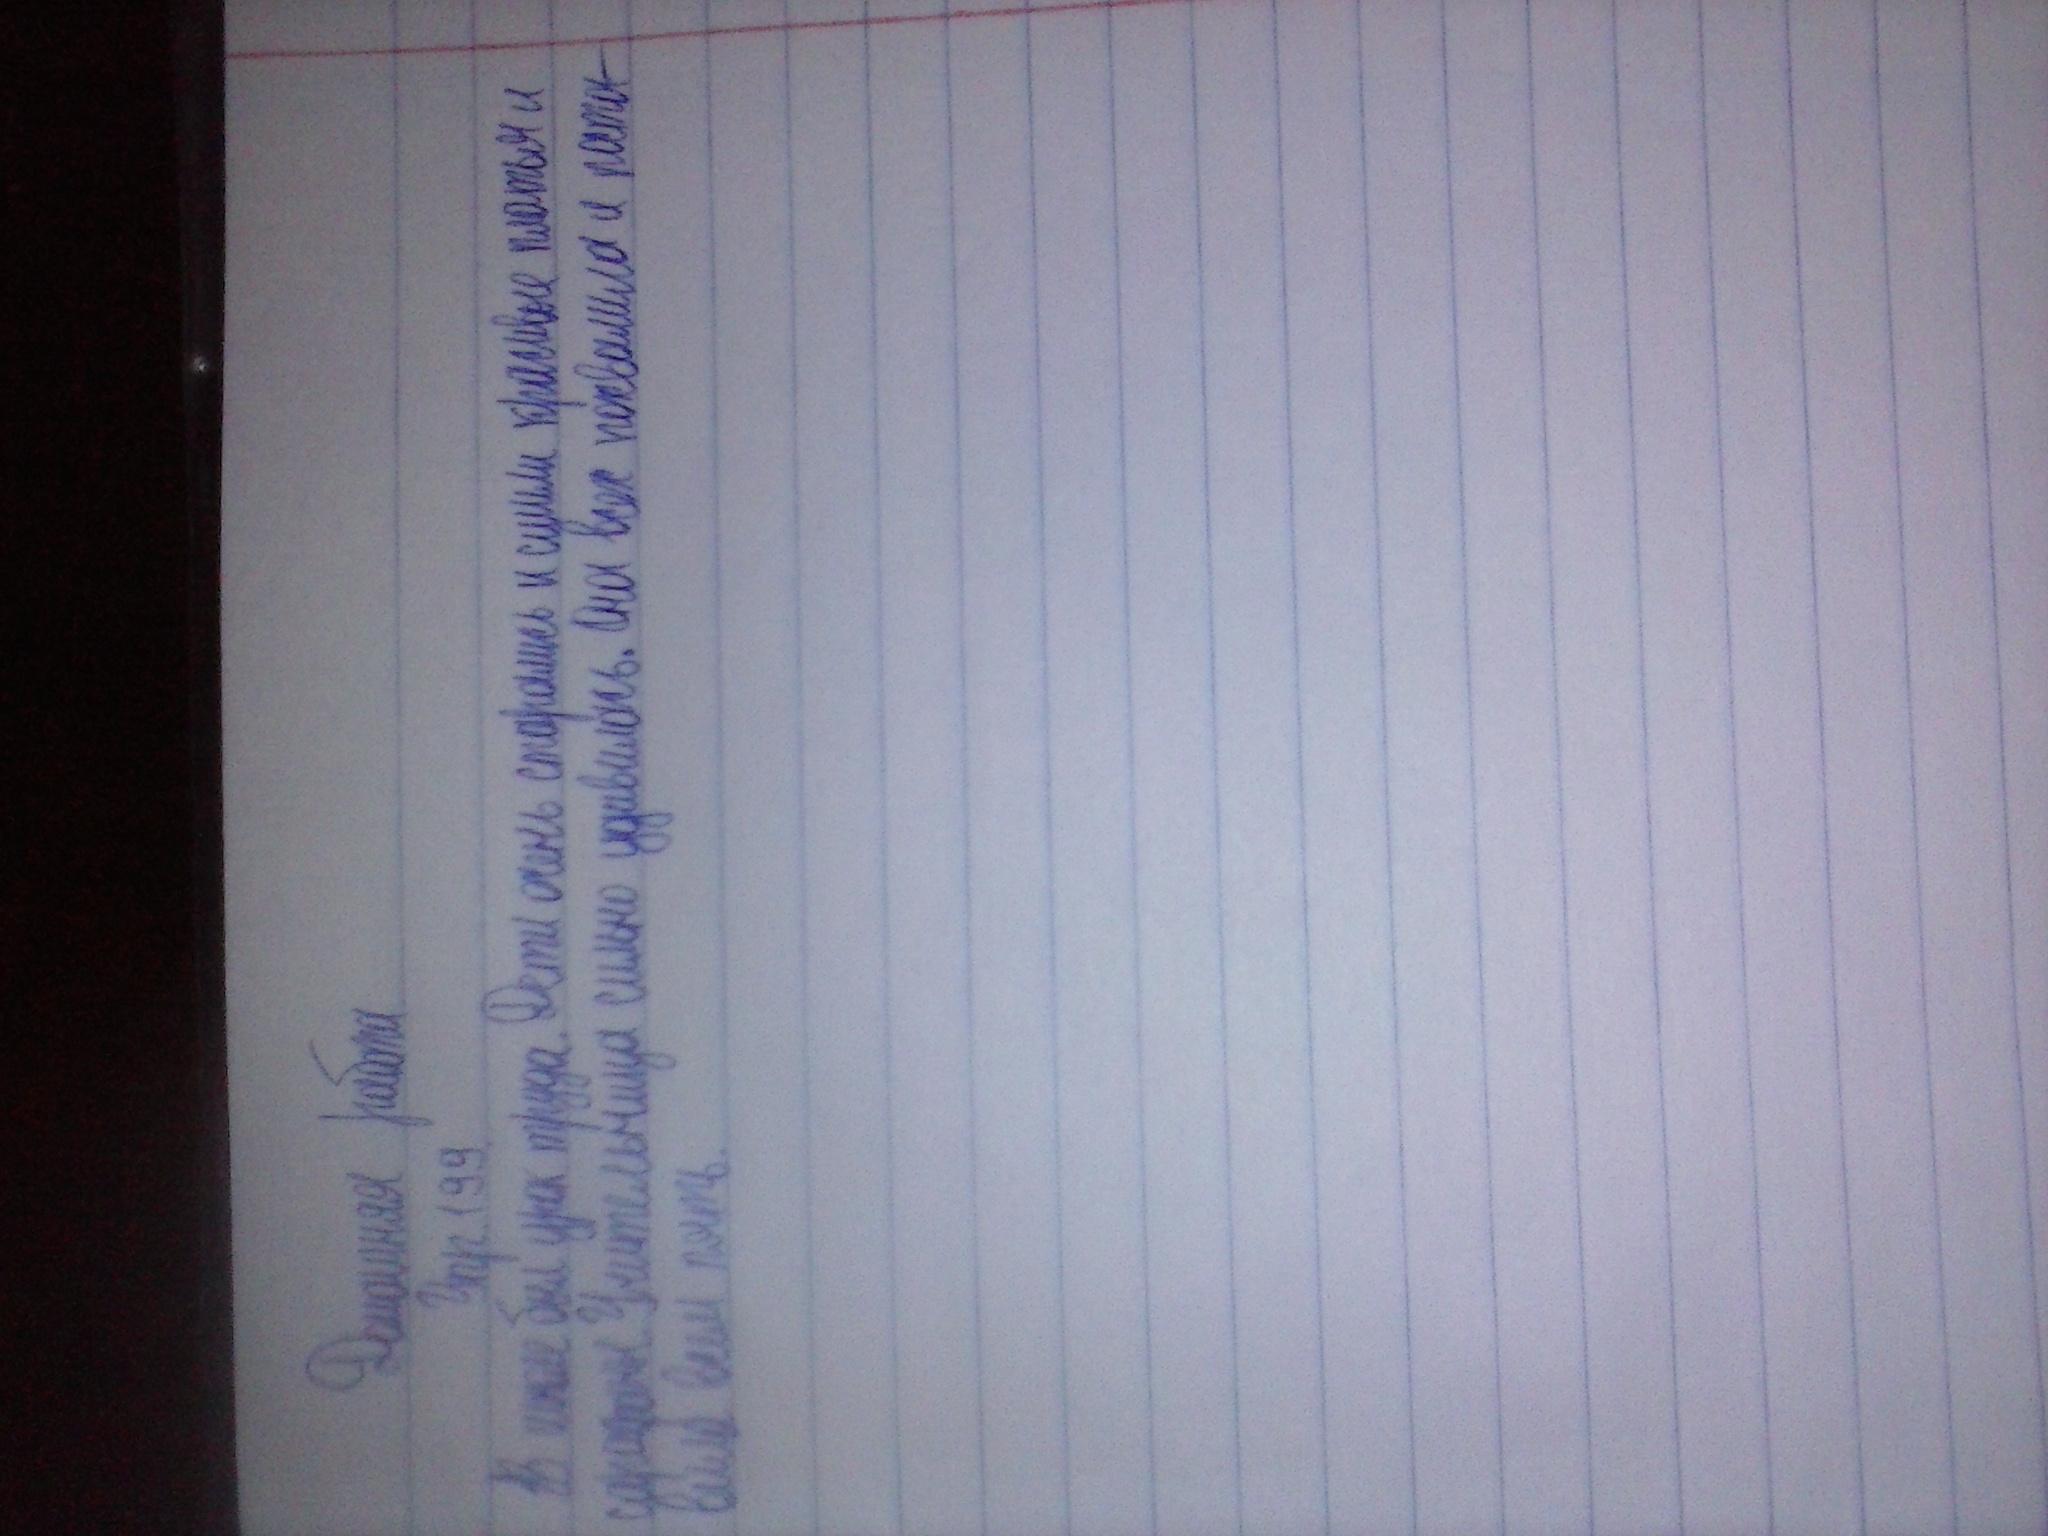 Домашняя работа
Упр. 199
В школе был урок труда. Дети очень старались и сшили красивые платья и
сарафаны. Учительница сильно удивилась. Она всех похвалила и поста-
вила всем пять.